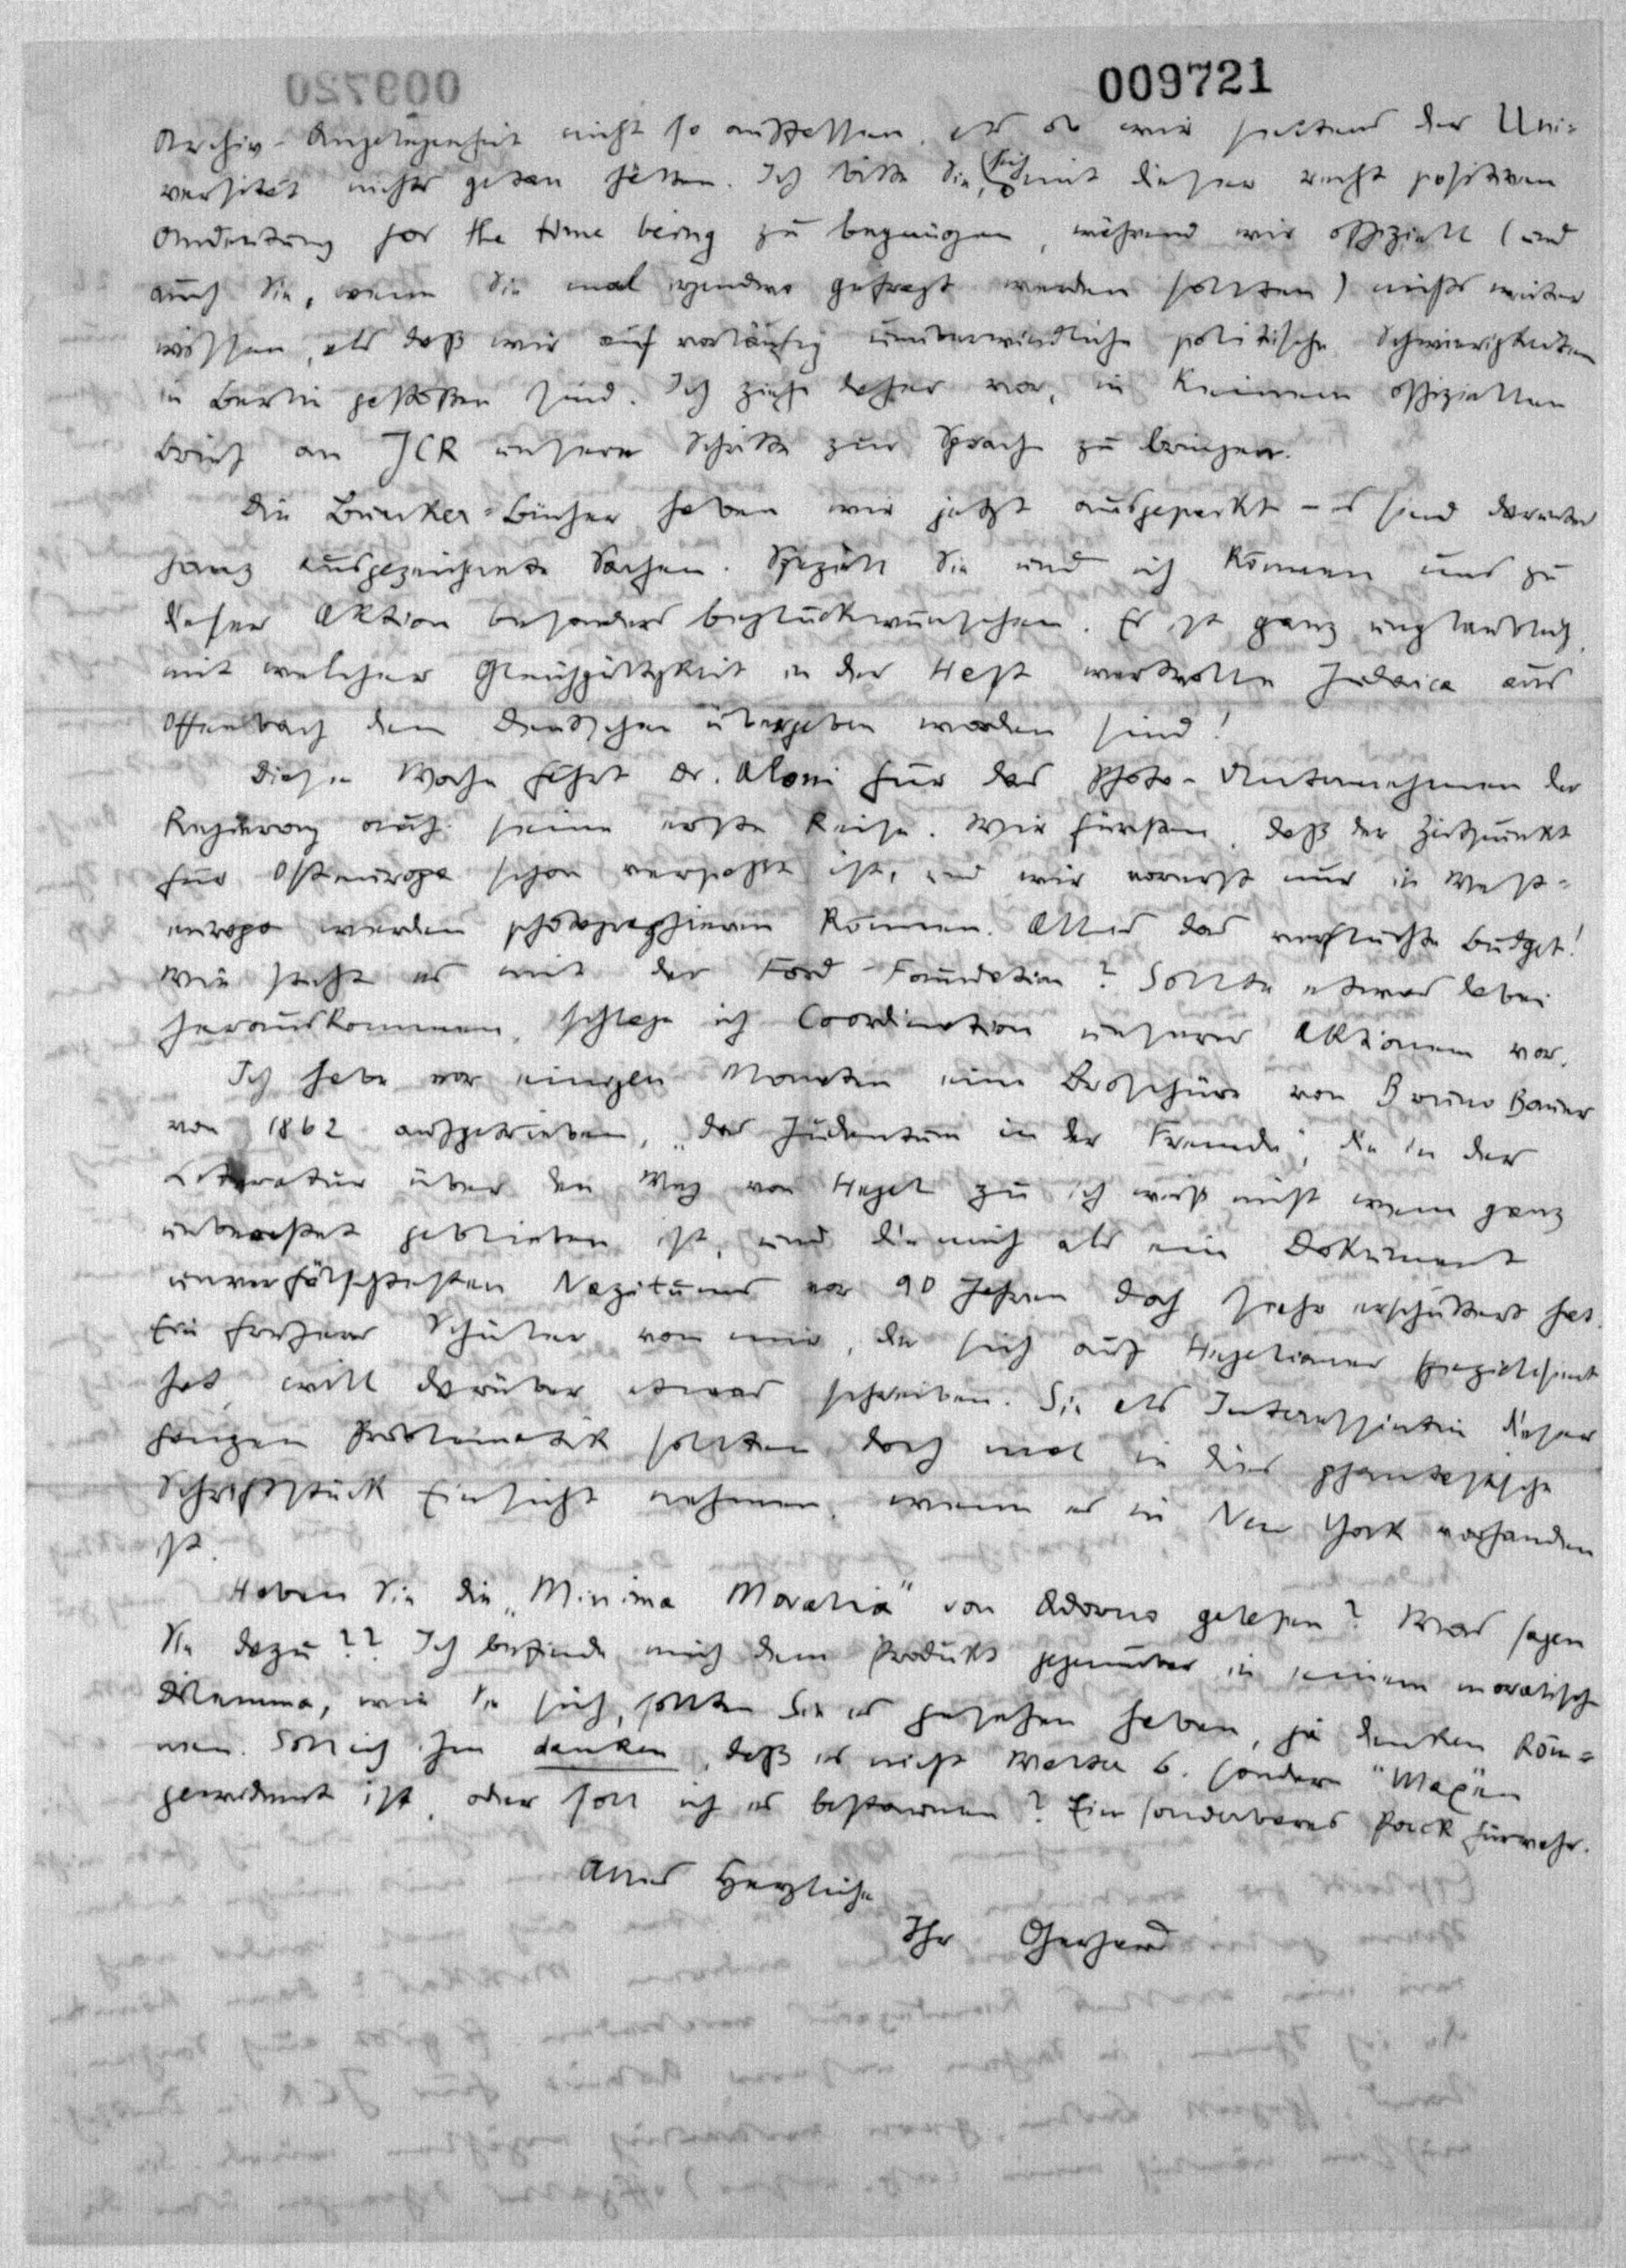 009721
Archiv-Angelegenheit nicht so auffassen, als ob wir seitens der Uni-
versität nichts getan hätten. Ich bitte Sie, sich mit dieser recht positiven
Andeutung for the time being zu begnügen, während wir offiziell (und
auch Sie, wenn Sie mal irgendwo gefragt werden sollten) nichts weiter
wissen, als daß wir auf vorläufig unüberwindliche politische Schwierigkeiten
in Berlin gestoßen sind. Ich ziehe daher vor, in keinem offiziellen
Brief an JCR unsere Schritte zur Sprache zu bringen.
Die Bunker-Bücher haben wir jetzt ausgepackt – es sind darunter
ganz ausgezeichnete Sachen. Speziell Sie und ich können uns zu
dieser Aktion besonders beglückwünschen. Es ist ganz unglaublich,
mit welcher Gleichgültigkeit in der Hast wertvolle Judaica aus
Offenbach den Deutschen übergeben worden sind!
Diese Woche fährt Dr. Aloni für das Photo-Unternehmen der
Regierung auf seine erste Reise. Wir fürchten, daß der Zeitpunkt
für Osteuropa schon verpaßt ist, und wir vorerst nur in West-
europa werden photographieren können. Alles das verfluchte Budget!
Wie steht es mit der Ford-Foundation? Sollte etwas dabei
herauskommen, schlage ich Coordination unserer Aktionen vor.
Ich habe vor einigen Monaten eine Broschüre von Bruno Bauer
von 1862 aufgetrieben, „das Judentum in der Fremde“, die in der
Literatur über den Weg von Hegel zu ich weiß nicht wem ganz
unbeachtet geblieben ist, und die mich als ein Dokument
unverfälschtesten Nazitums vor 90 Jahren doch sehr erschüttert hat.
Ein früherer Schüler von mir, der sich auf Hegelianer spezialisiert
hat, will darüber etwas schreiben. Sie als Interessentin dieser
ganzen Problematik sollten doch mal in dies phantastische
Schriftstück Einsicht nehmen, wenn es in New York vorhanden
ist.
Haben Sie die „Minima Moralia“ von Adorno gelesen? Was sagen
Sie dazu?? Ich befinde mich dem Produkt gegenüber in einem moralischen
Dilemma, wie Sie sich, sollten Sie es gesehen haben, ja denken kön-
nen. Soll ich ihm danken, daß es nicht Walter B. sondern "Max"en
gewidmet ist, oder soll ich es bestaunen? Ein sonderbares Pack fürwahr.
Alles Herzliche
Ihr Gerhard